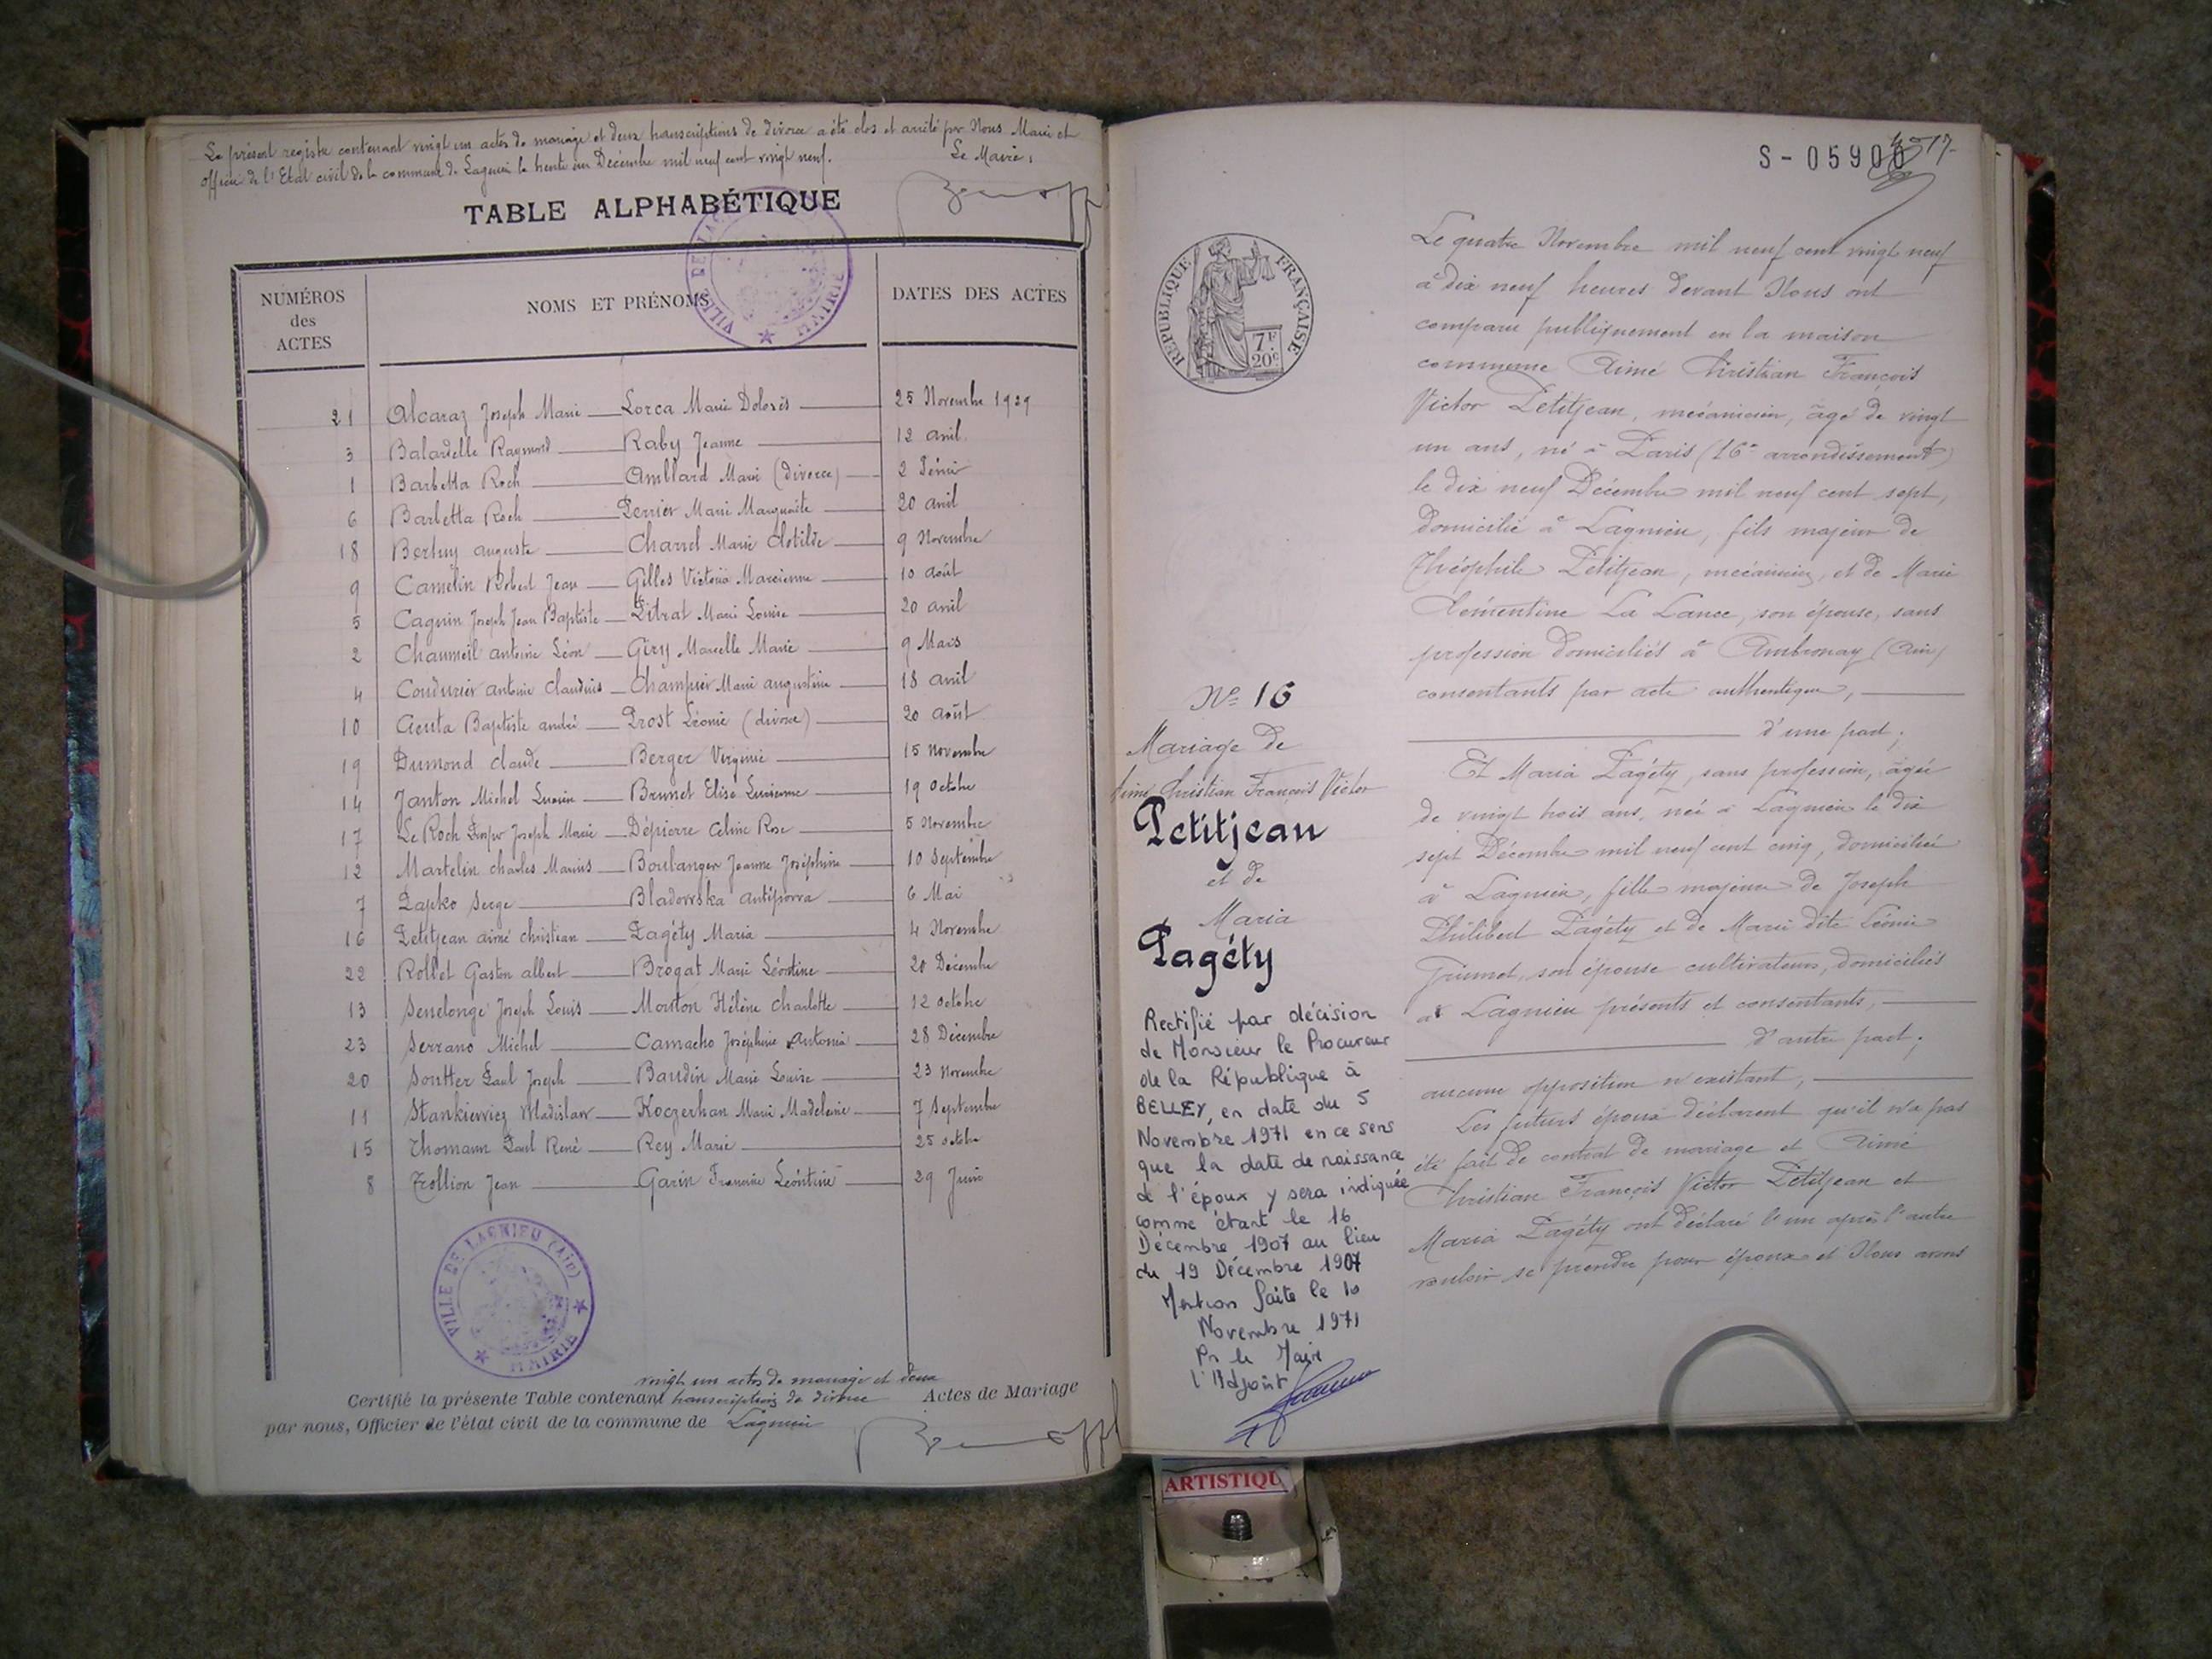 Le présent registre contenant vingt un actes de mariage et deux transcriptions de divorce a été clos et arrêté par Nous Maire et
officier de l'Etat civil de la commune de Lagnieu le trente un Décembre mil neuf cent vingt neuf.
Le Maire,
TABLE ALPHABÉTIQUE
NUMÉROS des ACTES NOMS ET PRÉNOMS DATES DES ACTES
21 Alcaraz Joseph Marie Lorca Marie Dolorès 25 Novembre 1929
3 Balardelle Raymond Raby Jeanne 12 avril
1 Barbetta Roch Amblard Marie (divorce) 2 Février
6 Barbetta Roch Perrier Marie Marguerite 20 avril
18 Berthuy auguste Charrel Marie Clotilde 9 Novembre
9 Camelin Robert Jean Gilles Victoria Marcienne 10 août
5 Cagnin Joseph Jean Baptiste Pitrat Marie Louise 20 avril
2 Chaumeil antoine Léon Giry Marcelle Marie 9 Mars
4 Condurier antoine claudius Champier Marie augustine 18 avril
10 Ceuta Baptiste andré Prost Léonie (divorce) 20 août
19 Dumond claude Berger Virginie 15 Novembre
14 Janton Michel Lucien Brunet Elise Lucienne 19 octobre
17 Le Roch Joseph Marie Dépierre Celine Rose 5 Novembre
12 Martelin charles Marius Boulanger Jeanne Joséphine 10 Septembre
7 Papko Serge Bladovska 6 Mai
16 Petitjean aimé christian Pagéty Maria 4 Novembre
22 Rollet Gaston albert Brogat Marie Léontine 20 Décembre
13 Senelonge Joseph Louis Mouton Hélène charlotte 12 octobre
23 Serrano Michel Camacho Joséphine Antonia 28 Décembre
20 Soutter Paul Joseph Baudin Marie Louise 23 novembre
11 Stankiewiez Wladislaw Koczerhan Marie Madeleine 7 Septembre
15 Thomann Paul René Rey Marie 25 octobre
8 Trollion Jean Garin Francine Léontine 29 Juin
VILLE DE LAGNIEU (Ain)
MAIRIE
vingt un actes de mariage et deux
Certifié la présente Table contenant transcriptions de divorce Actes de Mariage
par nous, Officier de l'état civil de la commune de Lagnieu
S-05900
RÉPUBLIQUE FRANÇAISE
7F
20c
Nº 16
Mariage de
Aimé Christian François Victor
Petitjean
et de
Maria
Pagéty
Rectifié par décision
de Monsieur le Procureur
de la République à
BELLEY, en date du 5
Novembre 1971 en ce sens
que la date de naissance
de l'époux y sera indiquée
comme étant le 16
Décembre 1907 au lieu
du 19 Décembre 1907
Mention faite le 10
Novembre 1971
Pr le Maire
l'Adjoint
Le quatre Novembre mil neuf cent vingt neuf
à dix neuf heures devant Nous ont
comparu publiquement en la maison
commune Aimé Christian François
Victor Petitjean, mécanicien, âgé de vingt
un ans, né à Paris (16e arrondissement)
le dix neuf Décembre mil neuf cent sept,
domicilié à Lagnieu, fils majeur de
Théophile Petitjean, mécanicien, et de Marie
Clémentine La Lance, son épouse, sans
profession domiciliés à Ambronay (Ain)
consentants par acte authentique,
d'une part;
Et Maria Pagéty, sans profession, âgée
de vingt trois ans, née à Lagnieu le dix
sept Décembre mil neuf cent cinq, domiciliée
à Lagnieu, fille majeure de Joseph
Philibert Pagéty et de Marie dite Léonie
son épouse cultivateurs, domiciliés
à Lagnieu présents et consentants,
d'autre part;
aucune opposition n'existant,
Les futurs époux déclarent qu'il n'a pas
été fait de contrat de mariage et Aimé
Christian François Victor Petitjean et
Maria Pagéty ont déclaré l'un après l'autre
vouloir se prendre pour époux et Nous avons
ARTISTIQU